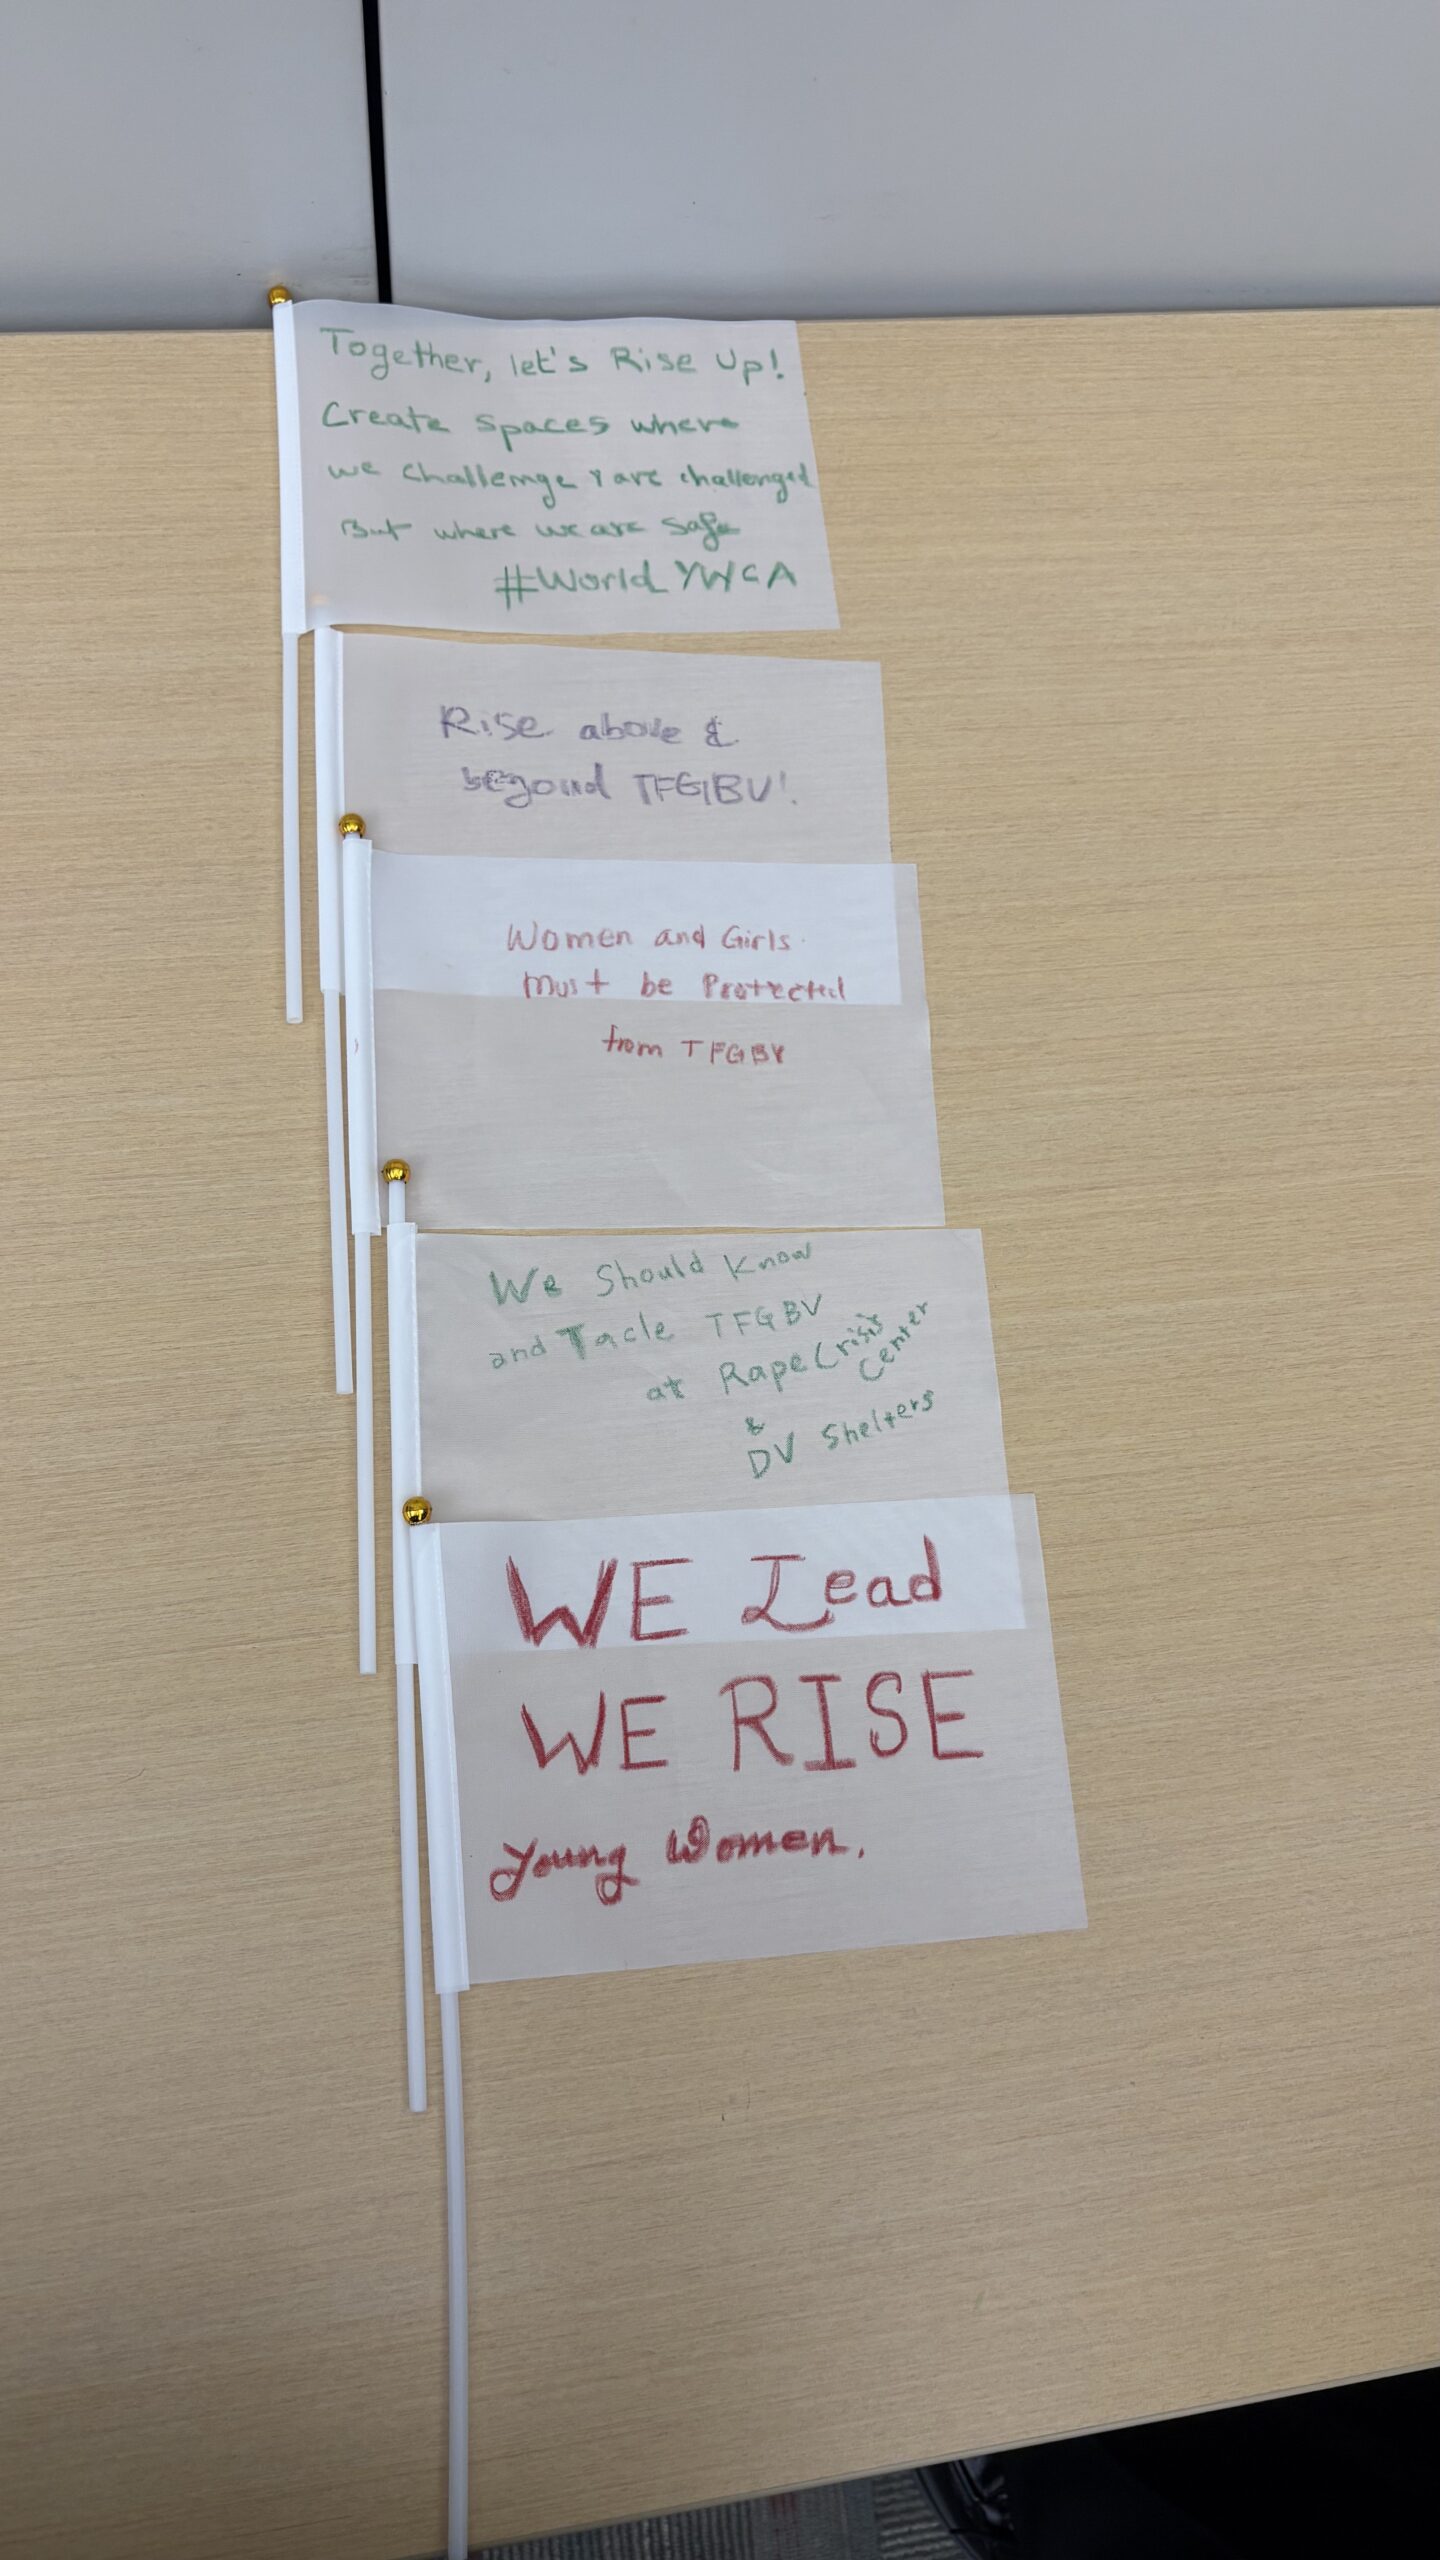 Together, let's Rise Up!
Create spaces where
we challenge & are challenged
But where we are safe
#World YWCA
Rise above &
beyond TFGBV!
Women and Girls
Must be Protected
from TFGBV
We Should Know
and Tacle TFGBV
at Rape Crisis
Center
&
DV Shelters
WE Lead
WE RISE
Young Women.